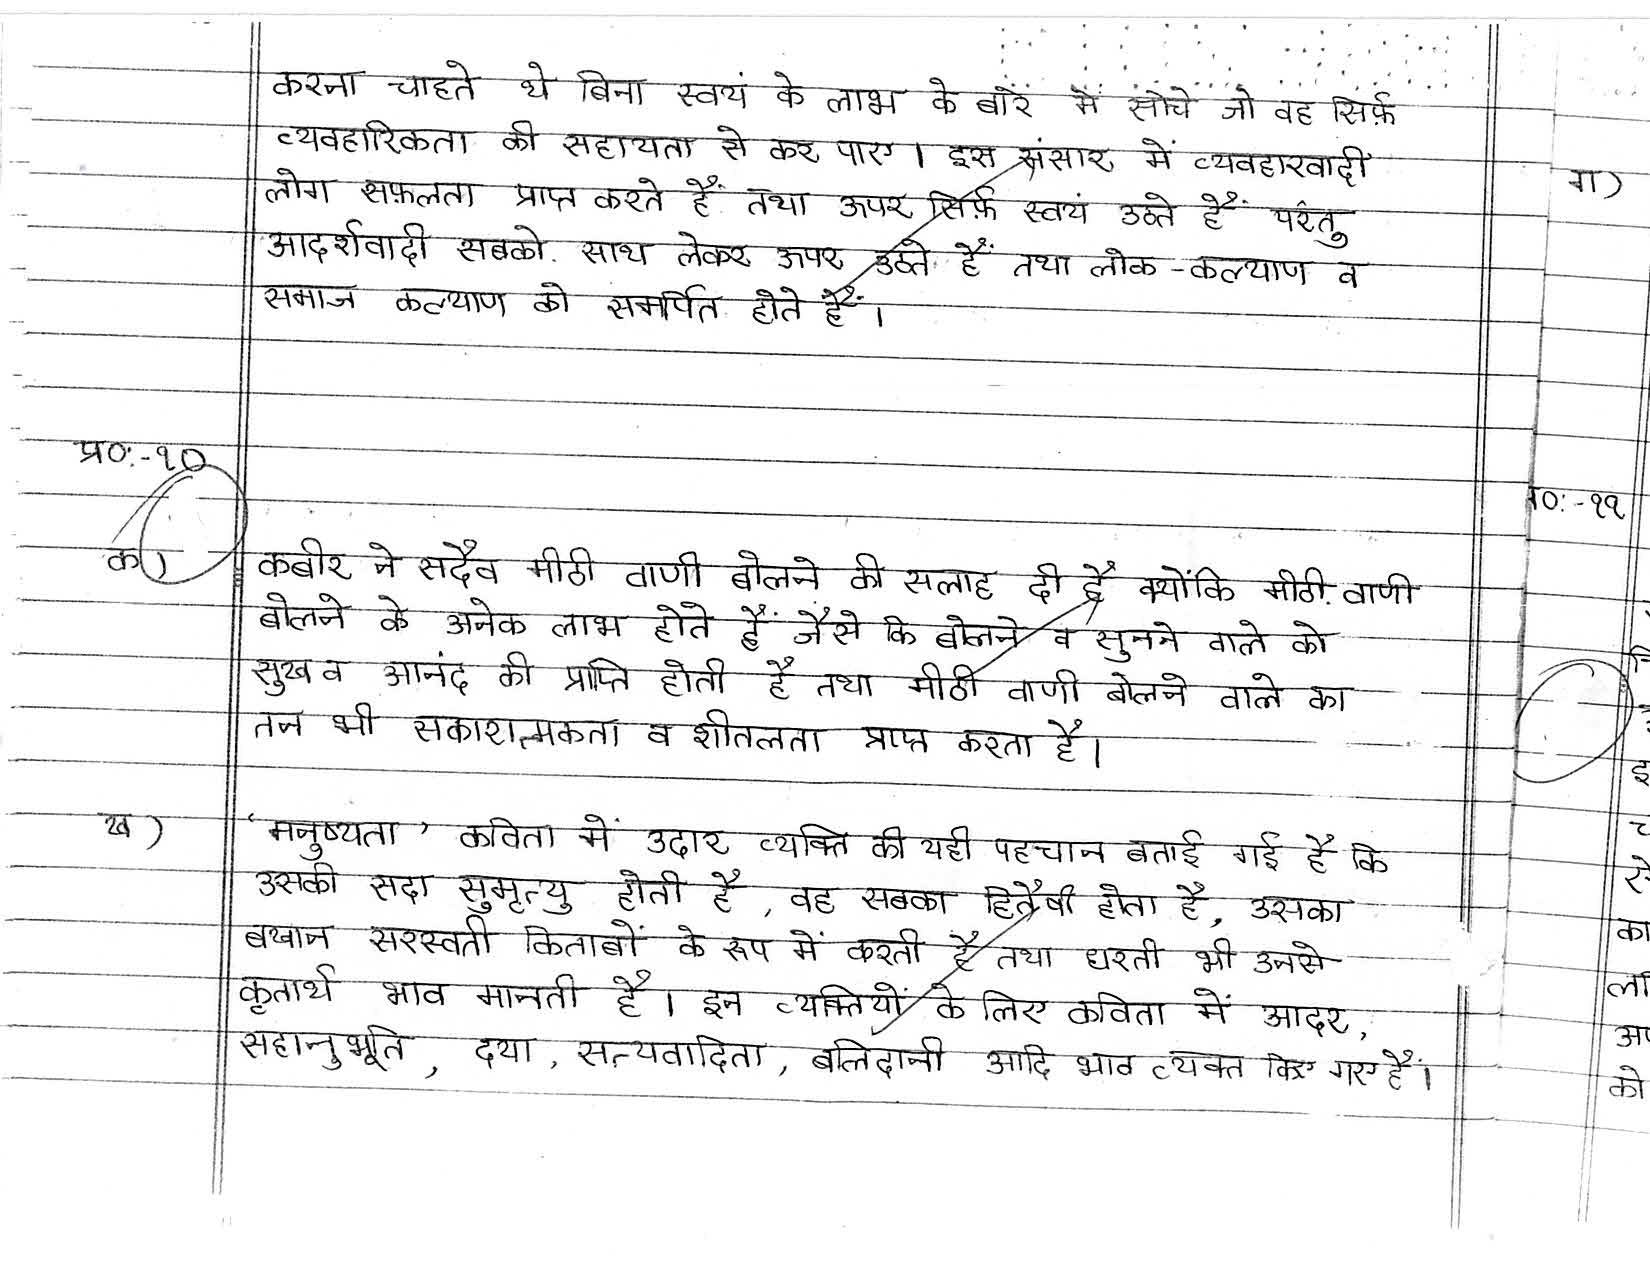 करना चाहते थे बिना स्वयं के लाभ के बारें में सोचे जो वह सिर्फ़
व्यवहारिकता की सहायता से कर पाए। इस संसार में व्यवहारवादी
लोग सफ़लता प्राप्त करते हैं तथा ऊपर सिर्फ़ स्वयं उठते हैं परंतु
आदर्शवादी सबको साथ लेकर ऊपर उठते हैं तथा लोक-कल्याण व
समाज कल्याण को समर्पित होते हैं।
प्र०:-१०
क) कबीर ने सदैव मीठी वाणी बोलने की सलाह दी है क्योंकि मीठी वाणी
बोलने के अनेक लाभ होते हैं जैसे कि बोलने व सुनने वाले को
सुख व आनंद की प्राप्ति होती है तथा मीठी वाणी बोलने वाले का
तन भी सकारात्मकता व शीतलता प्राप्त करता है।
ख) 'मनुष्यता' कविता में उदार व्यक्ति की यही पहचान बताई गई है कि
उसकी सदा सुमृत्यु होती है, वह सबका हितैषी होता है, उसका
बखान सरस्वती किताबों के रूप में करती है तथा धरती भी उनसे
कृतार्थ भाव मानती है। इन व्यक्तियों के लिए कविता में आदर,
सहानुभूति, दया, सत्यवादिता, बलिदानी आदि भाव व्यक्त किए गए हैं।
ग)
०:-११
इ
च
का
को